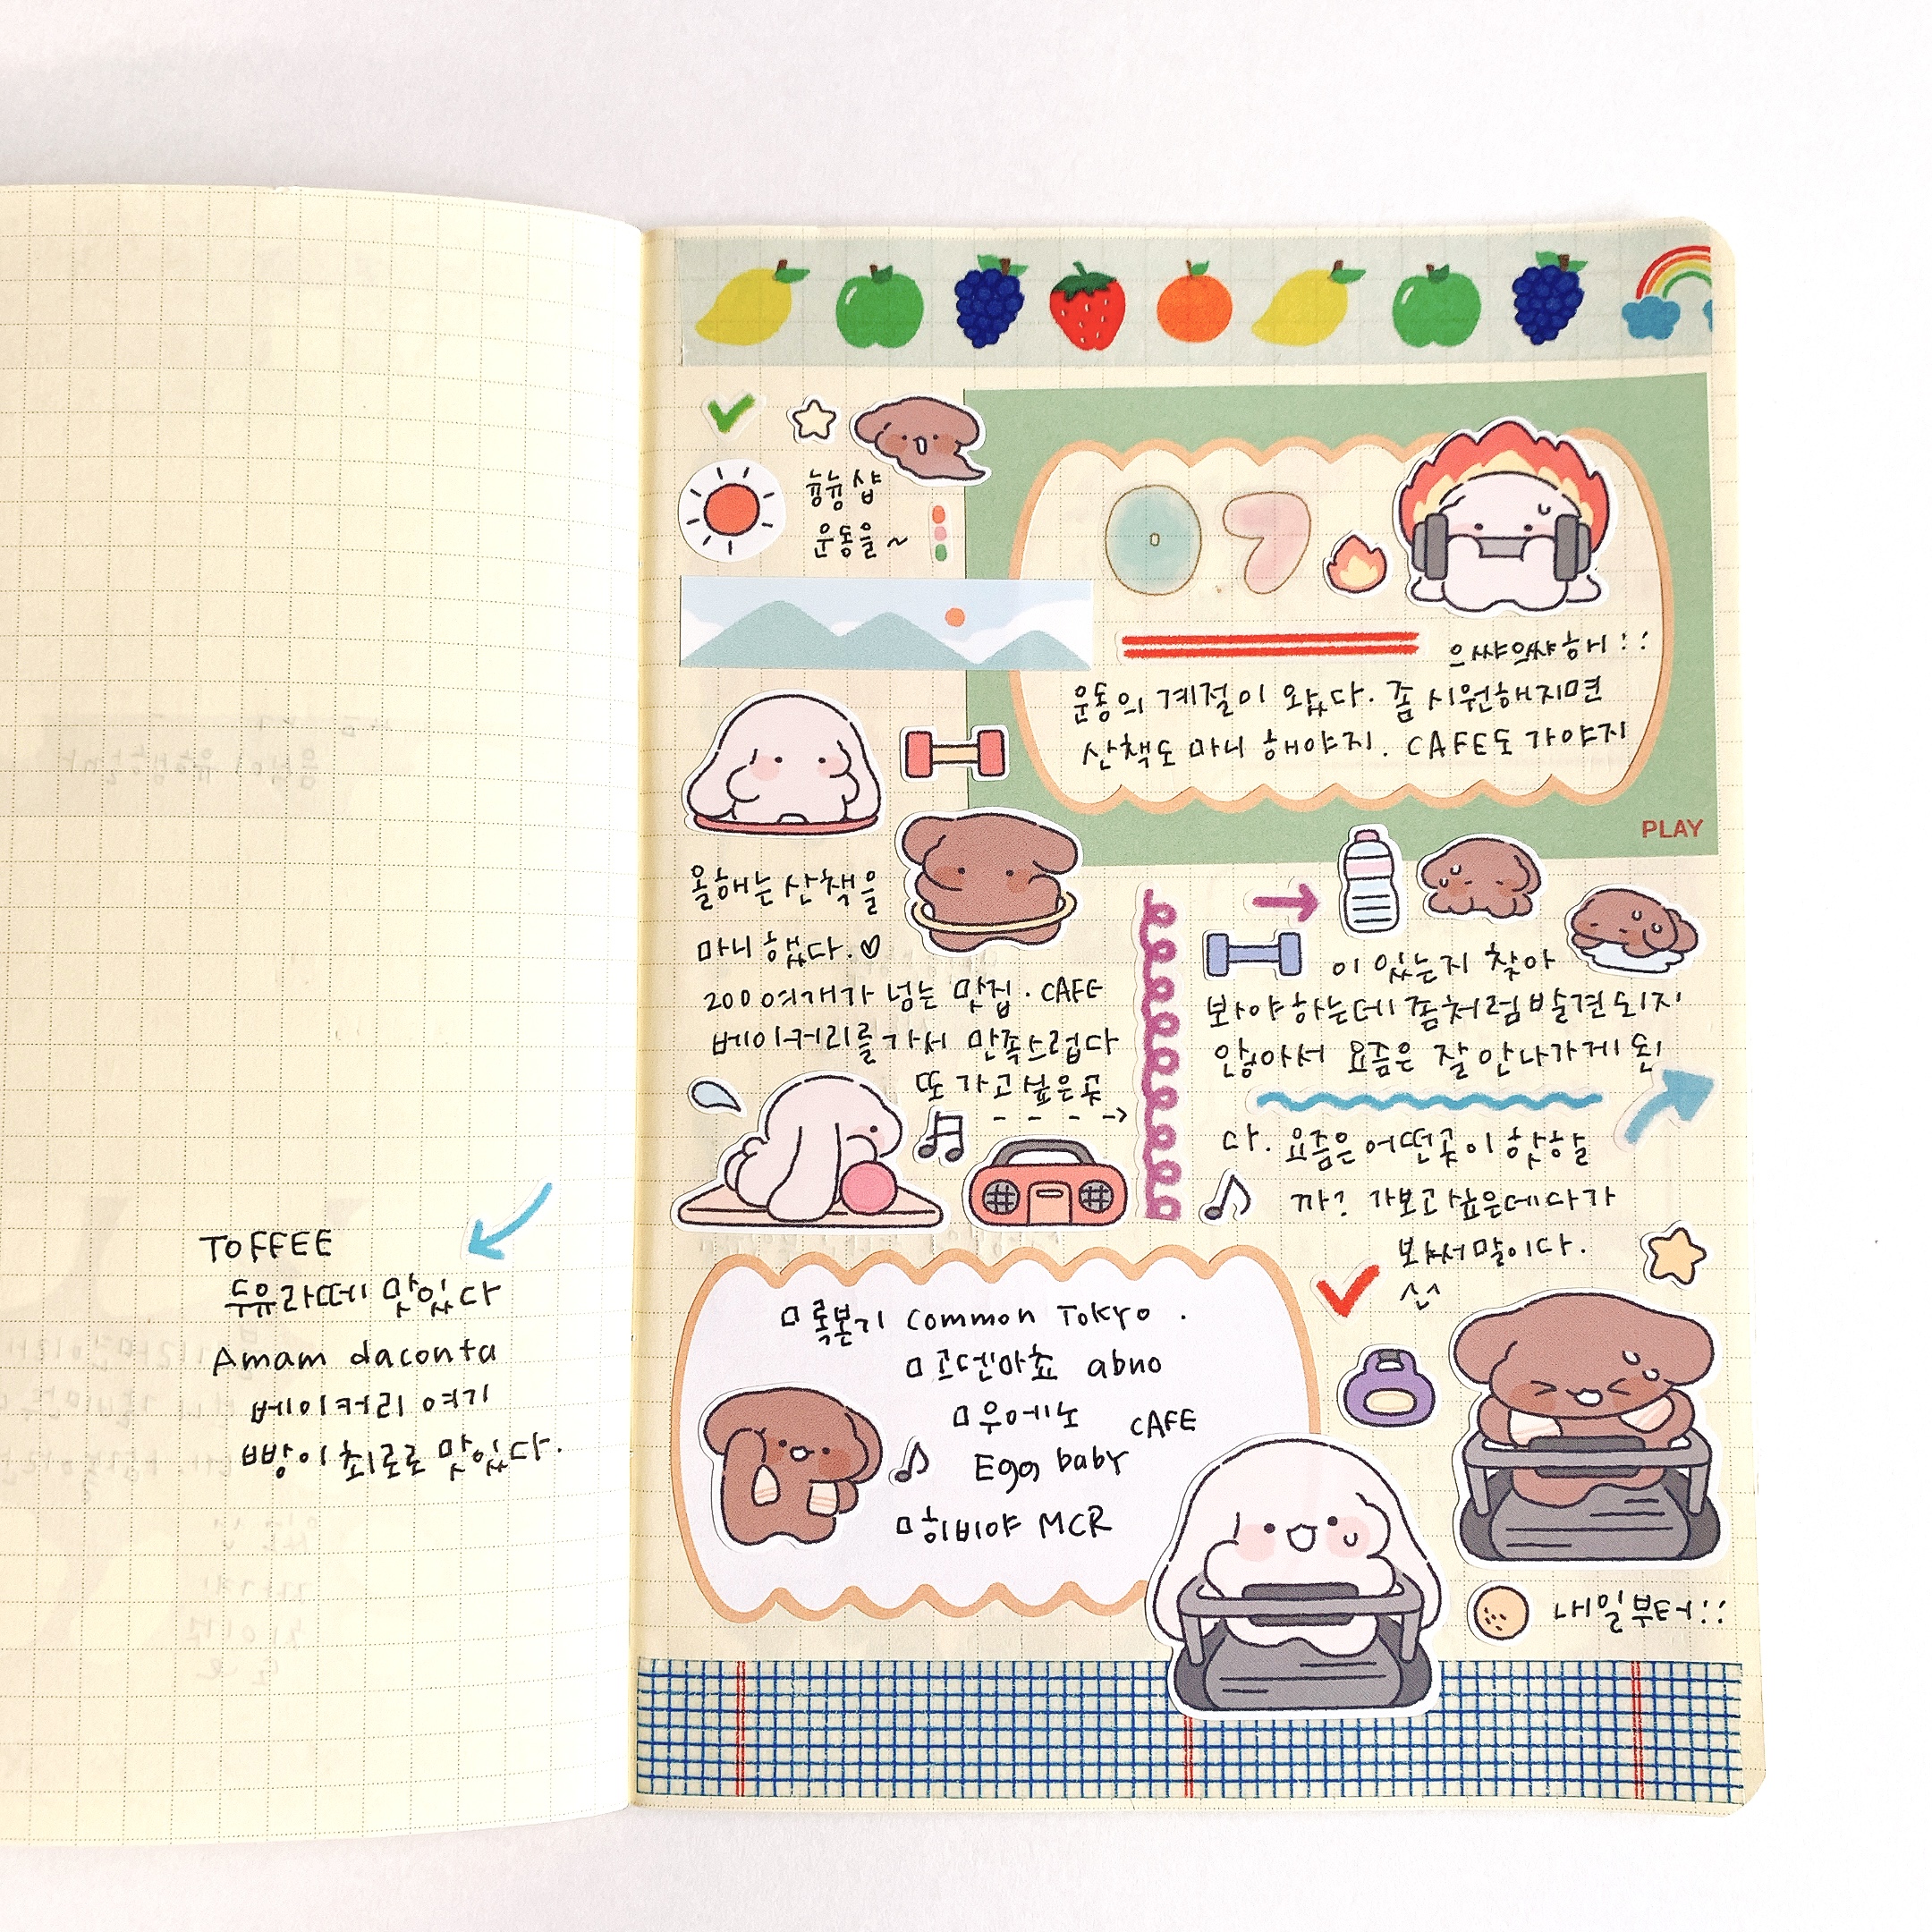 TOFFEE
두유라떼 맛있다
Amam daconta
베이커리 여기
빵이 최고로 맛있다.
늉늉샵
운동을~
07.
으쌰으쌰해::
운동의 계절이 왔다. 좀 시원해지면
산책도 마니 해야지. CAFE도 가야지
PLAY
올해는 산책을
마니 했다.♡
200여개가 넘는 맛집. CAFE
베이커리를 가서 만족스럽다
또 가고 싶은 곳
---->
이 있는지 찾아
봐야하는데 좀처럼 발견되지
않아서 요즘은 잘 안나가게 된
다. 요즘은 어떤곳이 핫할
까? 가보고싶은데 다가
봐서말이다.
^^
□ 롯본기 Common Tokyo.
□ 고덴마쵸 abno
□ 우에노 CAFE
Egg baby
□ 히비야 MCR
내일부터::